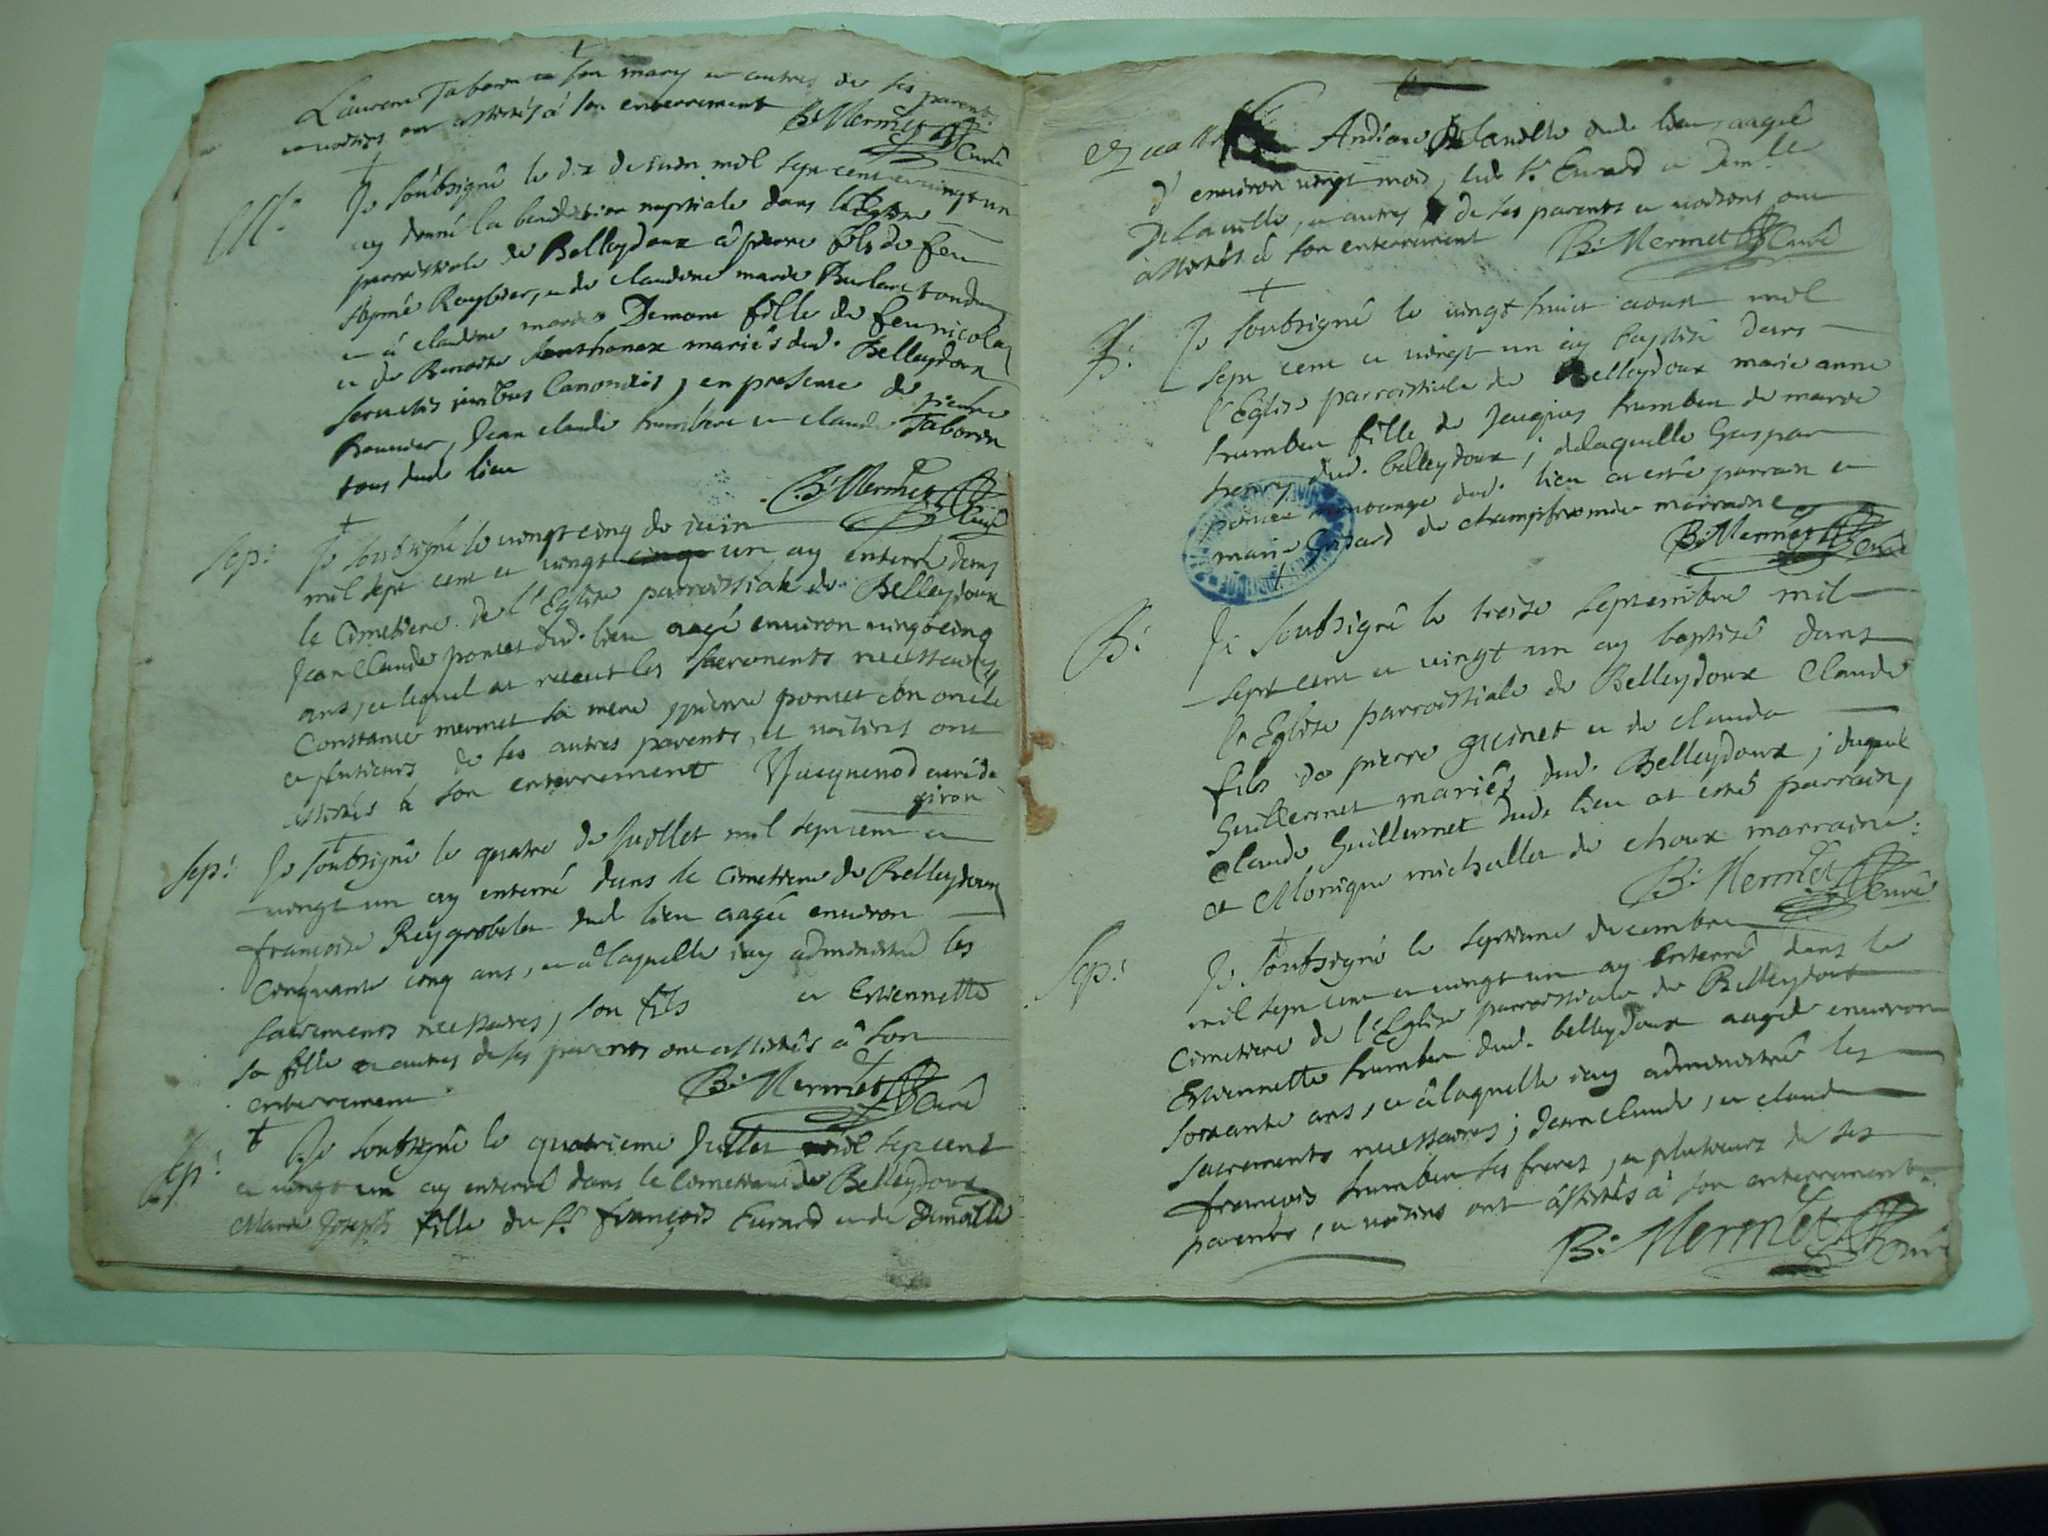 Laurent Taborin et son mary et autres de ses parents
et voisins ont assistés à son enterrement B: Mermet Curé
M: Je soubsigné le dix de Iuin mil sept cent et vingt un
ay donné la benediction nuptiale dans l'Eglise
parroissiale de Belleydoux à pierre fils de feu
Aymé Reybier, et de claudine marie Burlan
et à claudine marie Demone fille de feu nicolas
et de Benoite mariés dud. Belleydoux
servatis iuribus Canonicis, en presence de pierre
Bouvier, Jean claude humbert et claude Taborin
tous dud. lieu
B: Mermet Curé
Sep: Je soubsigné le vingt cinq de iuin
mil sept cent et vingt un ay enterré dans
le Cimetiere de l'Eglise parroissiale de Belleydoux
Jean Claude poncet dud. lieu aagé environ vingt cinq
ans, et lequel at receut les sacrements necessaires
Constance mermet sa mere, pierre poncet son oncle
et plusieurs de ses autres parents, et voisins ont
assistés à son enterrement Jacquenod curé de
giron
Sep: Je soubsigné le quatre de Juillet mil sept cent et
vingt un ay enterré dans le Cimetiere de Belleydoux
francoise Reygrobelet dud. lieu aagée environ
cinquante cinq ans, et à laquelle iay administré les
sacrements necessaires, son fils et Estiennette
sa fille et autres de ses parents ont assistés à son
enterrement
B: Mermet Curé
Sep: Je soubsigné le quatrieme Juillet mil sept cent
et vingt un ay enterré dans le Cimetiere de Belleydoux
Marie Joseph fille du Sr. françois Evrard et de Dmlle
Andreane Delaville dud. lieu, aagée
d'environ vingt mois, led. Sr. Evrard et Demlle
Delaville, et autres de ses parents et voisins ont
assistés à son enterrement B: Mermet Curé
B: Je soubsigné le vingt huit aoust mil
sept cent et vingt un ay baptisé dans
l'Eglise parroissiale de Belleydoux marie anne
humbert fille de Jacques humbert de marie
henry dud. belleydoux; delaquelle Gaspar
poncet dud. lieu at esté parrain et
marie Godard de champfromier marraine
B: Mermet Curé
B: Je soubsigné le treise septembre mil
sept cent et vingt un ay baptisé dans
l'Eglise parroissiale de Belleydoux Claude
fils de pierre guinet et de claudo
Guillermet mariés dud. Belleydoux; duquel
Claude Guillermet dud. lieu at esté parrain,
et Monique michallet de choux marraine.
B: Mermet Curé
Sep: Je soubsigné le septieme decembre
mil sept cent et vingt un ay enterré dans le
Cimetiere de l'Eglise parroissiale de Belleydoux
Estiennette humbert dud. belleydoux aagée environ
soixante ans, et à laquelle iay administré les
sacrements necessaires; Jean Claude, et claude
francois humbert ses freres, et plusieurs de ses
parents, et voisins ont assistés à son enterrement
B: Mermet Curé